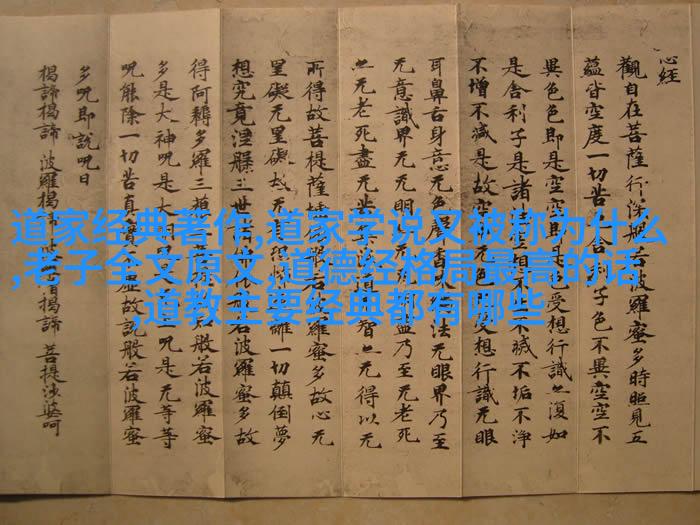 道家经典著作,道家学说又被称为什么
,老子全文原文,道德经格局最高的话
,道教主要经典都有哪些
心经
觀自在菩薩行深般若波羅蜜多時照見五
蘊皆空度一切苦 舍利子色不異空空不
異色色即是空空 是色受想行識亦復如
是舍利子是諸法 相不生不滅不垢不淨
不增不減是故空 无色 受想行識无眼
耳鼻舌身意无色聲香 法无眼界乃至
无意識界无无明 盡乃至无老死
亦无老死盡无苦 道 智亦无得以无
所得故菩提薩埵 若 羅蜜多故心无
罣礙无罣礙故无 離一切顛倒夢
想究竟涅槃三世 若波羅蜜多故
得阿耨多羅三藐 般若波羅蜜
多是大神呪是大明 呪是无等等
呪能除一切苦真實 虛故說般若波羅蜜
多呪即說呪曰
揭諦揭諦 波羅揭諦 揭諦 菩提薩婆呵